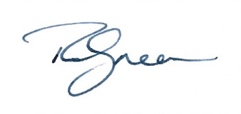 R Green